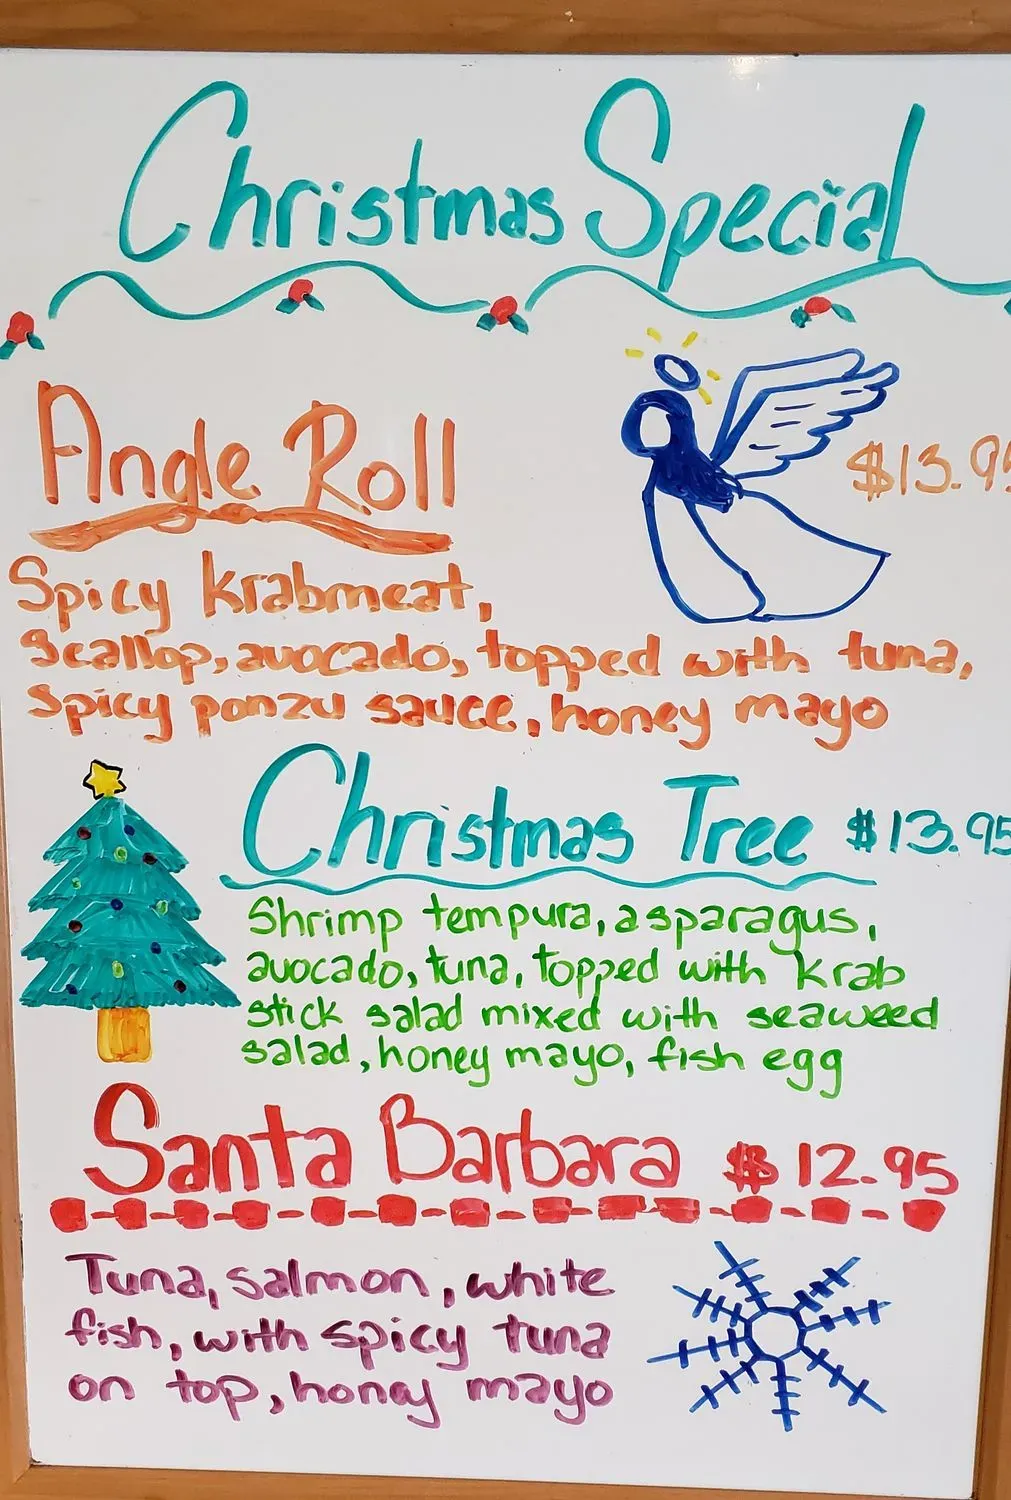 Christmas Special
Angle Roll
$13.95
Spicy krabmeat,
scallop, avocado, topped with tuna,
spicy ponzu sauce, honey mayo
Christmas Tree $13.95
Shrimp tempura, asparagus,
avocado, tuna, topped with krab
stick salad mixed with seaweed
salad, honey mayo, fish egg
Santa Barbara $12.95
Tuna, salmon, white
fish, with spicy tuna
on top, honey mayo